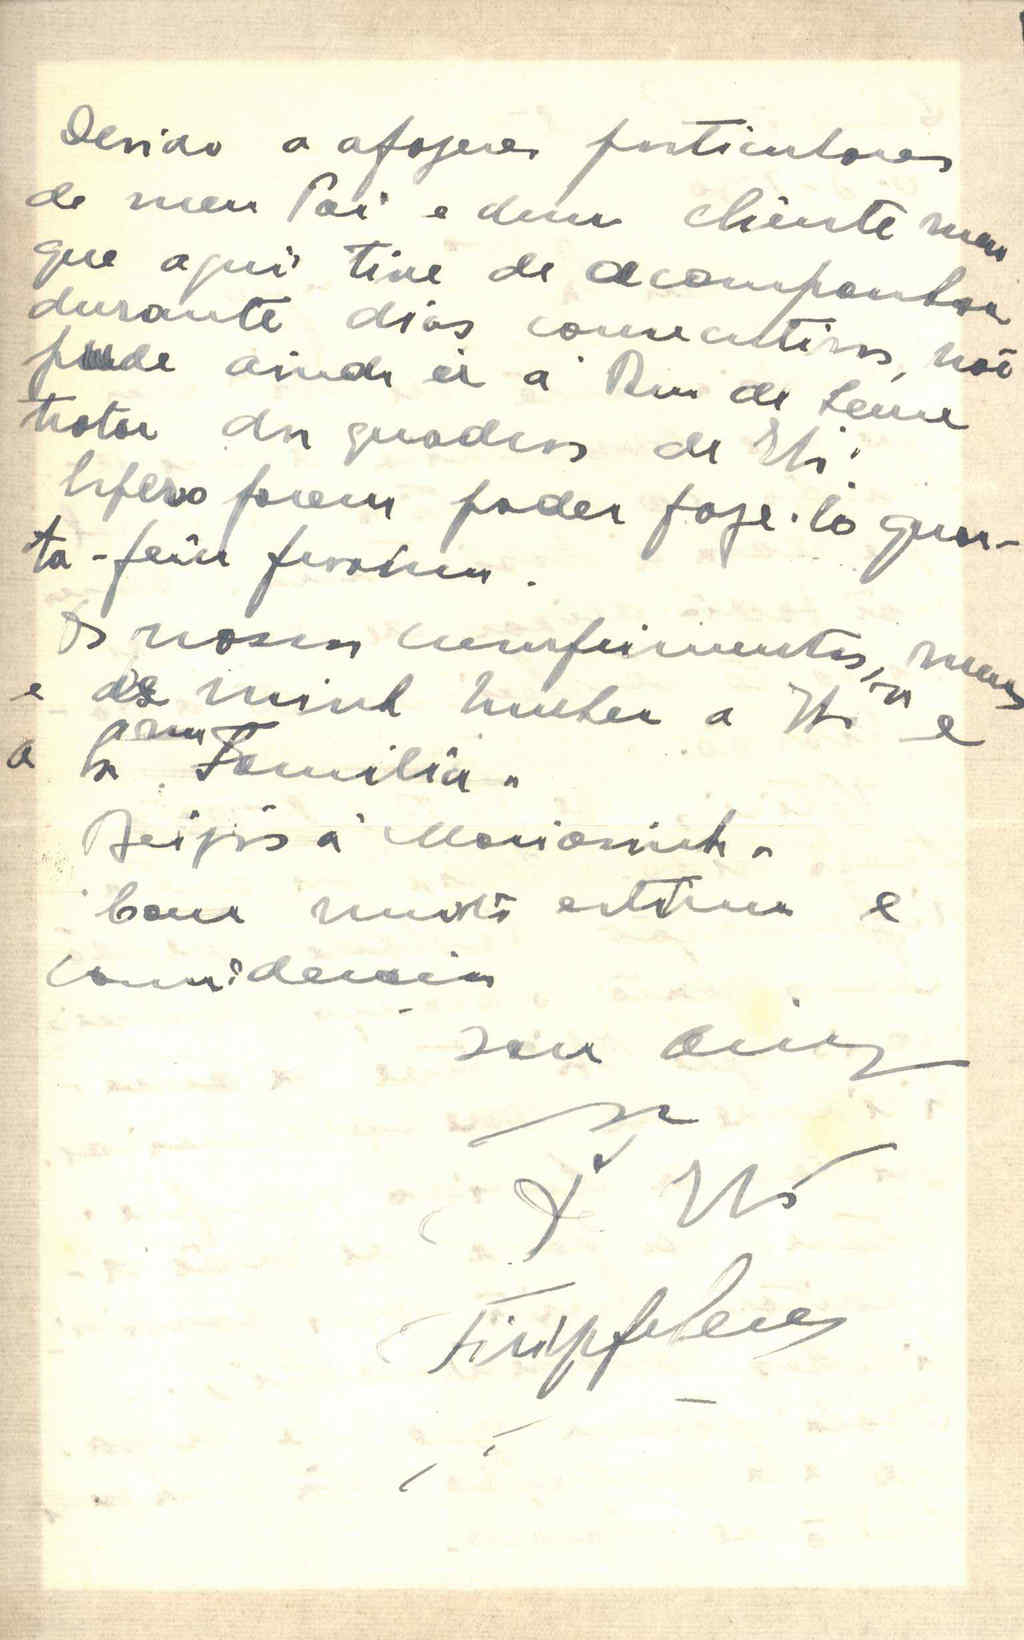 Devido a afazeres particulares
de meu Pai e dum cliente meu
que aqui tive de acompanhar
durante dias consecutivos, não
pude ainda ir á Rua de
tratar dos quadros de V.
Espero porem poder faze-lo quar-
ta-feira proxima.
Os nossos cumprimentos, meus
e de minha mulher a V. e
a Familia.
Beijos á Mariasinha.
Com muita estima e
consideração
Sou amigo